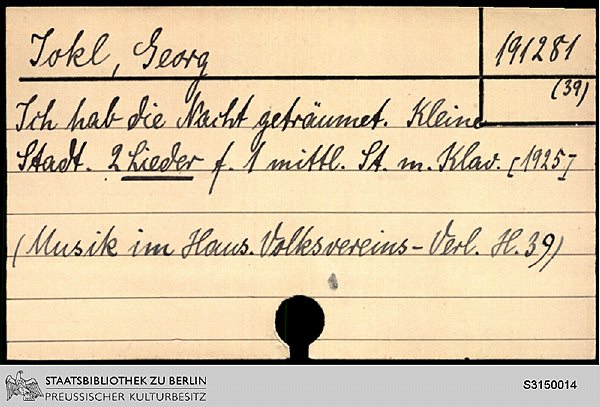 Jokl, Georg
191281
(39)
Ich hab die Nacht geträumet. Kleine
Stadt. 2 Lieder f. 1 mittl. St. m. Klav. [1925]
(Musik im Haus. Volksvereins-Verl. H. 39)
STAATSBIBLIOTHEK ZU BERLIN
PREUSSISCHER KULTURBESITZ
S3150014